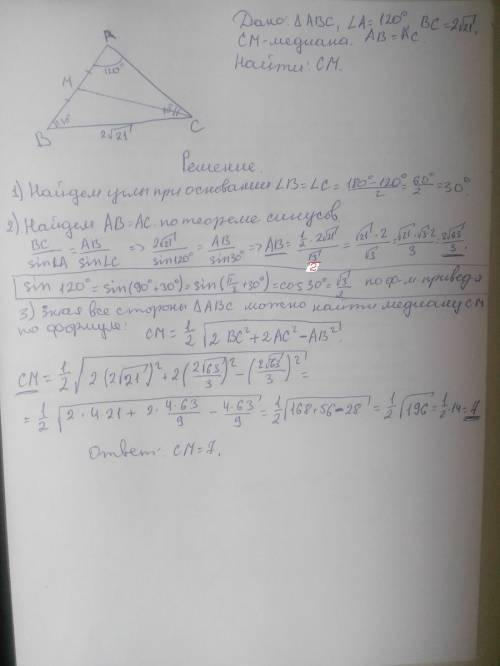 Дано: △ABC, ∠A=120°, BC=2√21,
CM-медиана. AB=AC.
Найти: CM.
A
120°
M
B
C
2√21
Решение.
1) Найдем углы при основании ∠B=∠C=(180°-120°)/2=60°/2=30°
2) Найдем AB=AC по теореме синусов
BC/sin∠A=AB/sin∠C => 2√21/sin120°=AB/sin30° => AB=(1/2·2√21)/(√3/2)=√21·2/√3=√21·√3·2/3=2√63/3.
sin120°=sin(90°+30°)=sin(π/2+30°)=cos30°=√3/2 по ф-м приведя
3) Зная все стороны △ABC можно найти медиану CM
по формуле: CM=1/2√(2BC²+2AC²-AB²).
CM=1/2√(2(2√21)²+2(2√63/3)²-(2√63/3)²)=
=1/2√(2·4·21+2·4·63/9-4·63/9)=1/2√(168+56-28)=1/2√196=1/2·14=7
Ответ: CM=7.